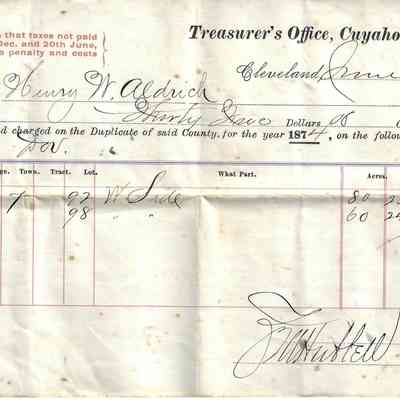 that taxes not paid
Dec. and 20th June,
penalty and costs
Treasurer's Office, Cuyaho
Cleveland, June
Henry W. Aldrich
Thirty Two Dollars
d charged on the Duplicate of said County, for the year 1874, on the follow
ge. Town. Tract. Lot. What Part. Acres.
7 92 W Side 80
98 " " 60